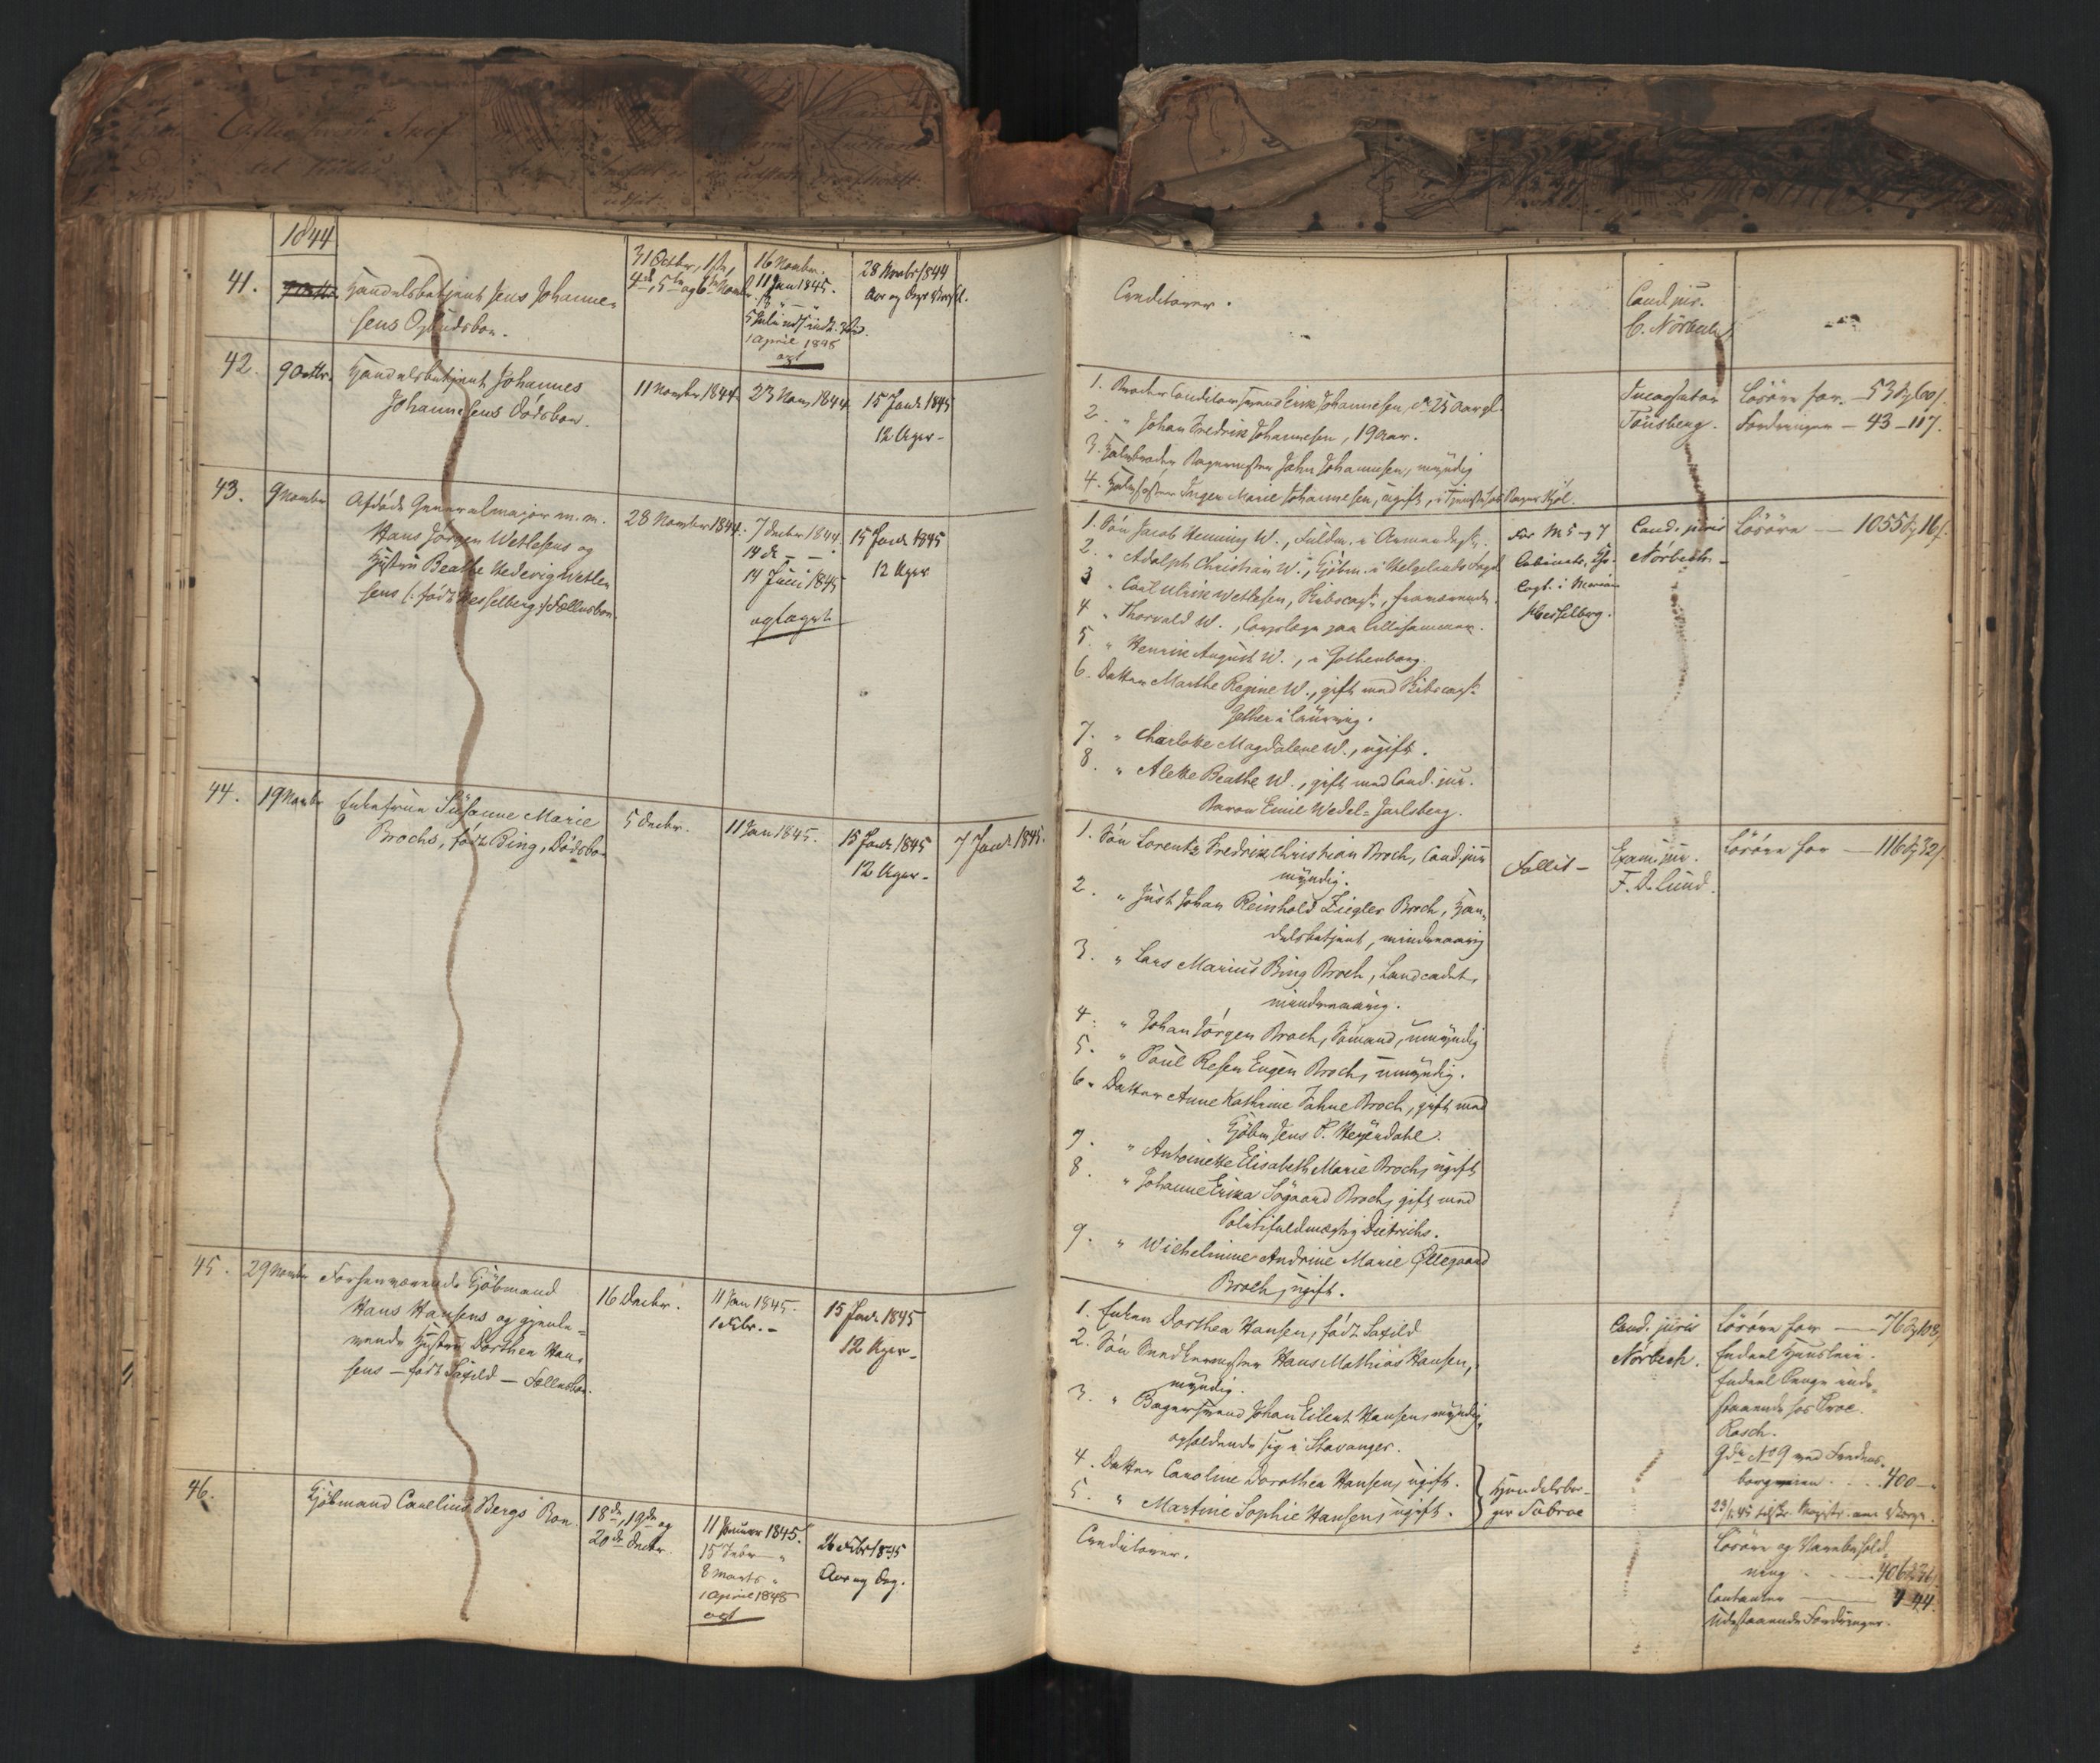 1844
41.
Handelsbetjent Jens Johanne-
sens Opbudsboe.
31 Octbr, 1ste,
4de, 5te og 6te Novembr
16 Novbr.
11 Jan 1845.
1 April 1848
28 Novbr 1844
Aar og Dags Varsel.
Creditorer.
Cand. jur.
C. Nörbech
42.
9 Octbr.
Handelsbetjent Johannes
Johannesens Dödsboe.
11 Novbr 1844.
23 Nov. 1844
15 Janr 1845
12 Uger-
1. Broder Conditorsvend Erik Johannesen, 25 Aar gl.
2. " Johan Fredrik Johannesen, 19 Aar.
3. Halvbroder Bagermester Jahn Johannesen, myndig
4. Halvsöster Inger Marie Johannesen, ugift, i Tjeneste hos Bager
Incassator
Tönsberg.
Lösöre for. - 53 60 ſ.
Fordringer - 43 - 117.
43.
9 Novembr
Afdöde Generalmajor m. m.
Hans Jörgen Wetlesens og
Hustru Beathe Hedevig Wetle-
sens /: födt Hesselberg :/ Fællesboe.
28 Novembr 1844.
7 Decbr 1844.
14 do - -
14 Juni 1845
optaget
15 Janr 1845
12 Uger
1. Sön Jacob Henning W., Fuldm. i Armeedept.
2. " Adolph Christian W., Kjöbm. i Helgelands Fogd.
3 " Carl Ulrik Wetlesen, Skibscapt., fraværende.
4. " Thorvald W., Corpslæge paa Lillehammer.
5. " Henrik August W., i Gothenborg.
6. Datter Marthe Regine W., gift med Skibscapt.
Gether i Laurvig.
7. " Charlotte Magdalene W., ugift.
8. " Alette Beathe W., gift med Cand. jur.
Baron Emil Wedel-Jarlsberg.
For No 5 og 7
Capt. i Marinen
Hesselberg.
Cand. juris
Nörbech -
Lösöre - 1055 16 ſ.
44.
19 Novbr
Enkefrue Susanne Marie
Brochs, födt Bing, Dödsboe
5 Decbr.
11 Jan 1845.
15 Janr 1845
12 Uger-
7 Janr 1845.
1. Sön Lorentz Fredrik Christian Broch, Cand. jur
myndig.
2. " Just Johan Reinhold Ziegler Broch, Han-
delsbetjent, mindreaarig
3. " Lars Marius Bing Broch, Landcadet,
mindreaarig.
4. " Johan Jörgen Broch, Sömand, umyndig
5. " Poul Resen Eugen Broch, umyndig.
6. Datter Anne Kathrine Jahne Broch, gift med
Kjöbm Jens P. Heyerdahl.
7. " Antoinette Elisabeth Marie Broch, ugift
8. " Johanne Erika Sögaard Broch, gift med
Politifuldmægtig Dietrichs.
9. " Wilhelmine Andrine Marie Øllegaard
Broch, ugift.
Fallit-
Exam. jur.
F. D. Lund.
Lösöre for - 116 32 ſ.
45.
29 Novbr
Forhenværende Kjöbmand
Hans Hansens og gjenle-
vende Hustru Dorthea Han-
sens - födt Saxild - Fællesboe.
16 Decbr.
11 Jan 1845.
1 Febr. -
15 Janr 1845
12 Uger-
1. Enken Dorthea Hansen, födt Saxild
2. Sön Snedkermester Hans Mathias Hansen,
myndig.
3. " Bagersvend Johan Eilert Hansen, myndig,
opholdende sig i Stavanger.
4. Datter Caroline Dorothea Hansen, ugift.
5. " Martine Sophie Hansen, ugift.
Handelsbor-
ger Sabroe
Cand. juris
Nörbech.
Lösöre for - 76 108 ſ
Endeel Huusleie.
Endeel Penge inde-
staaende hos Proc.
Rasch.
Gd No 9 ved Fredens-
borgveien. . . . 400 -
46.
Kjöbmand Carelius Bergs Boe.
18de, 19de og
20de Decbr.
11 Januar 1845.
15 Febr - "
8 Marts "
1 April 1848
opt
26 Febr 1845
Aar og Dag.
Creditorer.
Lösöre og Varebehold-
ning . . - 406 36 ſ.
Contanter - 4 - 44.
Udestaaende Fordringer.